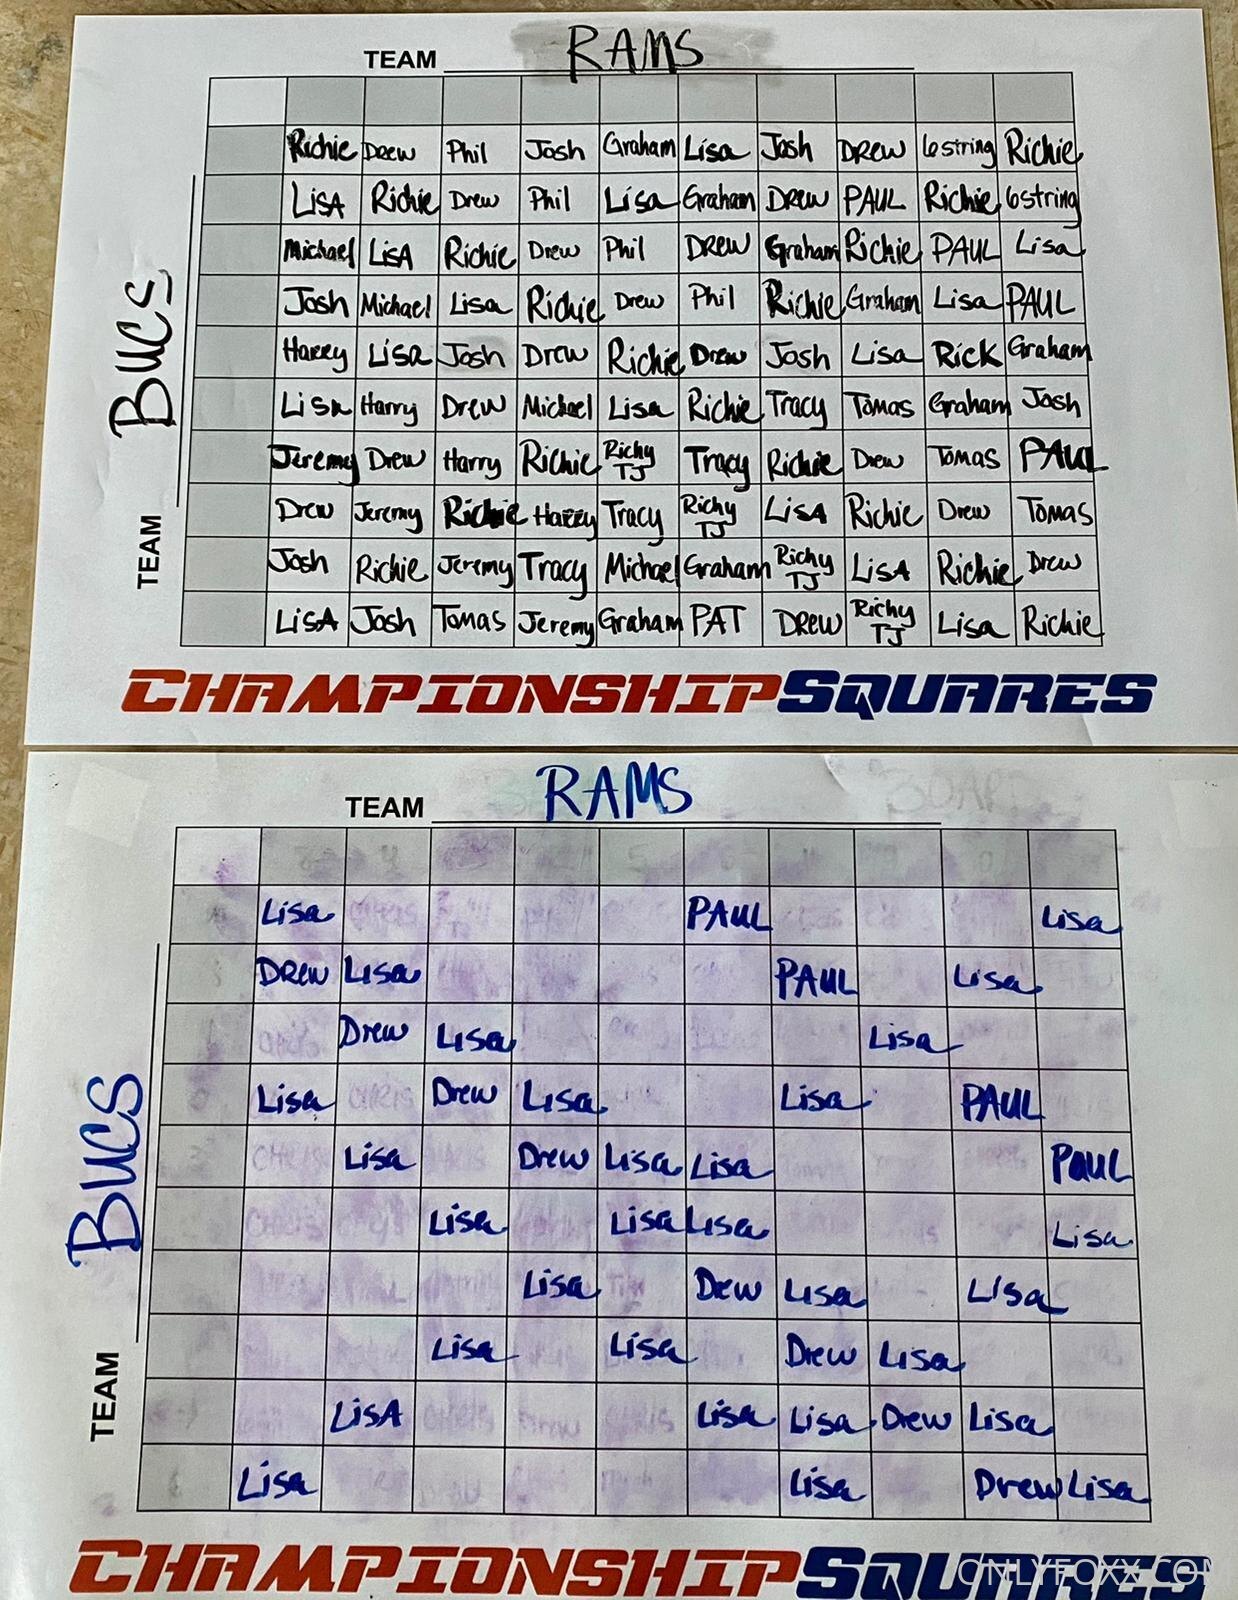 TEAM RAMS
Richie Drew Phil Josh Graham Lisa Josh DREW 6string Richie
LISA Richie Drew Phil Lisa Graham DREW PAUL Richie 6string
Michael LISA Richie Drew Phil DREW Graham Richie PAUL Lisa
Josh Michael Lisa Richie Drew Phil Richie Graham Lisa PAUL
Harry Lisa Josh Drew Richie Drew Josh Lisa RICK Graham
Lisa Harry DREW Michael Lisa Richie Tracy Tomas Graham Josh
Jeremy Drew Harry Richie Richy TJ Tracy Richie Drew Tomas PAUL
Drew Jeremy Richie Harry Tracy Richy TJ LISA Richie Drew Tomas
Josh Richie Jeremy Tracy Michael Graham Richy TJ LISA Richie Drew
LISA Josh Tomas Jeremy Graham PAT DREW Richy TJ Lisa Richie
TEAM BUCS
CHAMPIONSHIPSQUARES
TEAM RAMS
Lisa PAUL Lisa
DREW Lisa PAUL Lisa
Drew Lisa Lisa
Lisa Drew Lisa Lisa PAUL
Lisa Drew Lisa Lisa PAUL
Lisa Lisa Lisa Lisa
Lisa Drew Lisa Lisa
Lisa Lisa Drew Lisa
LISA Lisa Lisa Drew Lisa
Lisa Lisa Drew Lisa
TEAM BUCS
CHAMPIONSHIPSQUARES
ONLYFOXX.COM